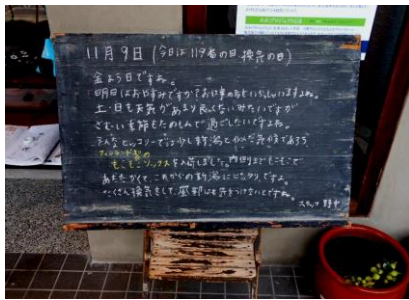 11月9日(今日は119番の日 換気の日)
金よう日ですね。
明日はおやすみですがお仕事の方もいらっしゃいますよね。
土・日もお天気があまり良くないみたいですが
さむい季節もたのしんで過ごしたいですよね。
そんなヒッコリーでは少し新潟とイメージ気候である
フィンランド製の
もこもこソックスを入荷しました。内側までもこもこで
あたたかくて、これからの新潟にピッタリですよ。
たくさん換気をして、風邪にも気をつけないとですね。
スタッフ 野中